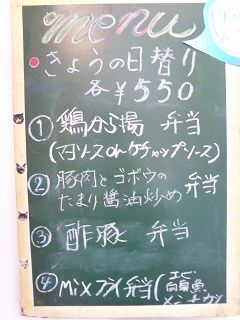 menu
きょうの日替り
各¥550
① 鶏から揚 弁当
(マヨソースorケチャップソース)
② 豚肉とゴボウの
たまり醤油炒め 弁当
③ 酢豚 弁当
④ Mixフライ弁当(エビ
白身魚
メンチカツ